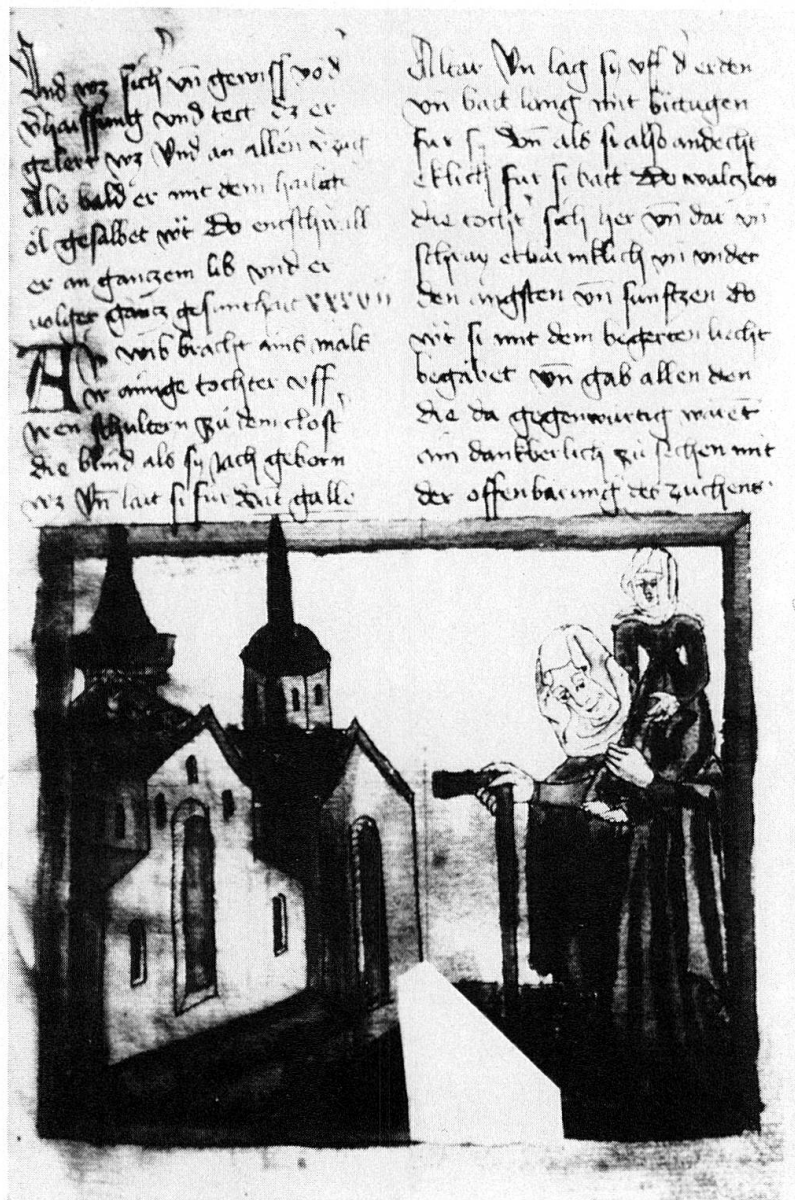 Und wz sich vn̄ gewiss vo d
vhaissung vnd tett dz er
gelert wz Vnd an allen
Als bald er mit dem hailgē
öl gesalbet wt Do entschwall
er an gantzem lib vnd er
volget gantz gesunthait XXXVII
Ain wib bracht ains mals
ir ainige tochter vff
schultern zu dem clost
die blind als sy vach geborn
wz Vn̄ lait si fur galle
Altar Vn̄ lag sy vff d erden
vn̄ batt lang mit
fur sy Vn̄ als si also andecht
eklich fur si batt Do walczlet
die tocht sich her vn̄ dar vn̄
schray erbarmklich vn̄ vnder
den angsten vn̄ sunftzen do
wt si mit dem begerten liecht
begabet vn̄ gab allen den
die da gegenwurtig warent
ain dankberlich zu sechen mit
der offenbarung des zaichens